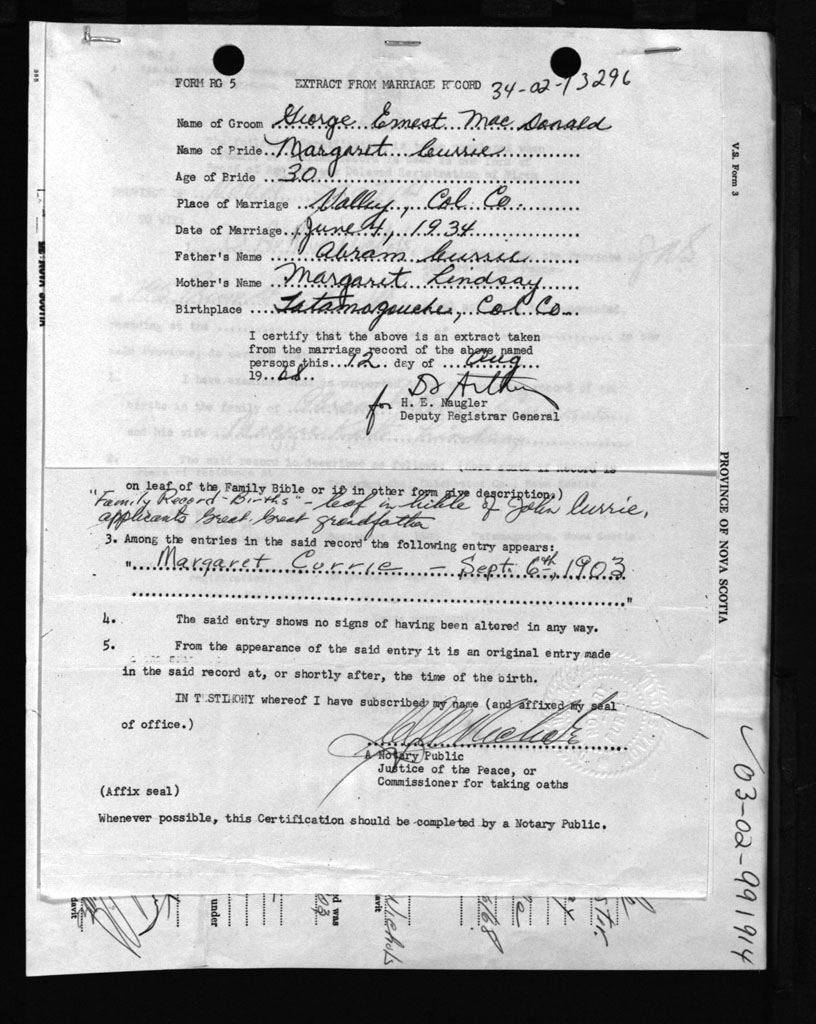 FORM RG 5 EXTRACT FROM MARRIAGE RECORD 34-02-13296
Name of Groom George Ernest Mac Donald
Name of Pride Margaret Currie
Age of Bride 30
Place of Marriage Valley, Col. Co.
Date of Marriage June 4, 1934
Father's Name Abram Currie
Mother's Name Margaret Lindsay
Birthplace Tatamagouche, Col. Co.
I certify that the above is an extract taken
from the marriage record of the above named
persons this 12 day of Aug
19 68
for H. E. Naugler
Deputy Registrar General
on leaf of the Family Bible or if in other form give description.)
"Family Record-Births" - leaf in bible of John Currie,
applicants Great Great grandfather
3. Among the entries in the said record the following entry appears:
"Margaret Currie - Sept. 6th, 1903
"
4. The said entry shows no signs of having been altered in any way.
5. From the appearance of the said entry it is an original entry made
in the said record at, or shortly after, the time of the birth.
IN TESTIMONY whereof I have subscribed my name (and affixed my seal
of office.)
A Notary Public
Justice of the Peace, or
Commissioner for taking oaths
(Affix seal)
Whenever possible, this Certification should be completed by a Notary Public.
V.S. Form 3
PROVINCE OF NOVA SCOTIA
03-02-991914
davit
under
d was
Nichols
davit